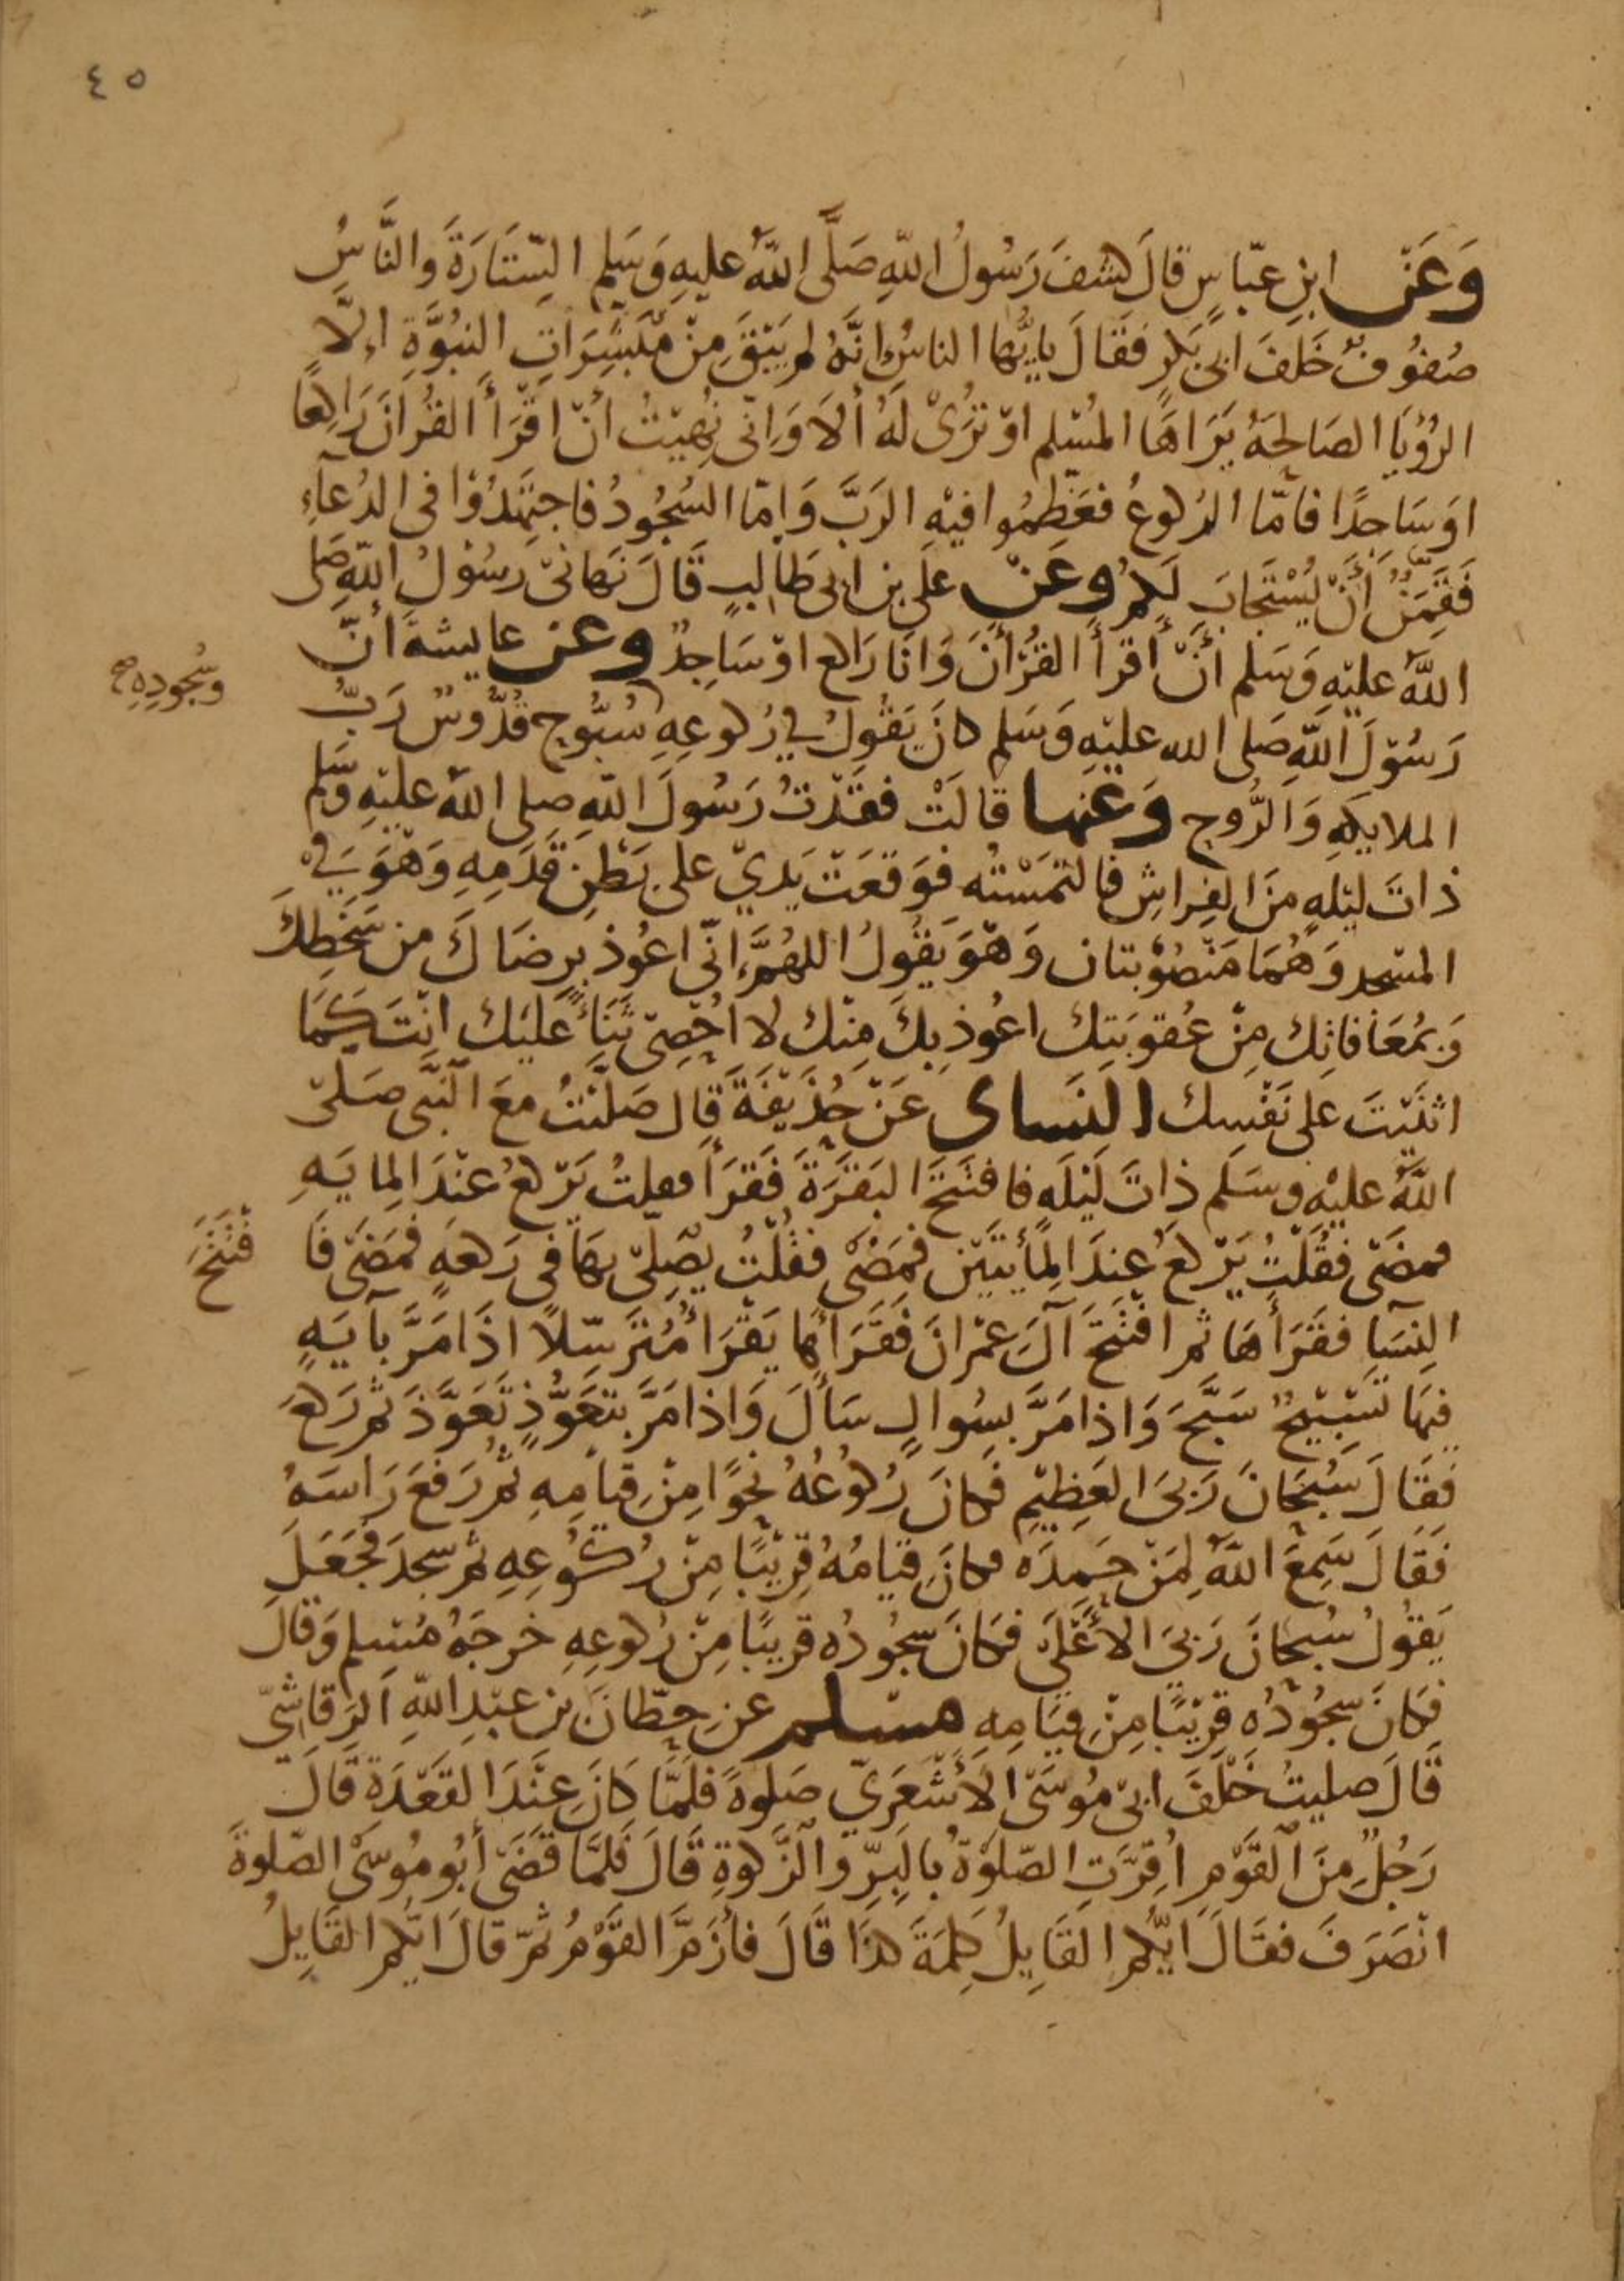 ٤٥
وَعَن ابنِ عبّاسٍ قالَ كشفَ رَسُولُ اللهِ صَلَّى اللهُ عليهِ وَسَلم السِّتَارَةَ وَالنَّاسُ
صُفُوفٌ خَلفَ ابى بَكرٍ فقَالَ يايُّها الناسُ انَّهُ لم يَبْقَ مِنْ مُبَشِّرَاتِ النبُوَّةِ اِلَّا
الرُؤيَا الصَالحَةُ يَرَاهَا المُسْلم اوْ تُرَىْ لَهُ ألَا وَاِنّى نُهِيْتُ انْ اقْرَأ القُرانَ رَاكِعًا
اوَ سَاجِدًا فامّا الرُكوعُ فعَظِمُوا فيْهِ الرَبَّ وَامّا السُجُودُ فاجتَهدُوْا فى الدُعآءِ
فَقَمِنٌ أنْ يُسْتَجابَ لَكم وعَنْ على بن ابى طَالبٍ قَالَ نهَانىْ رَسُوْلُ اللهِ صَلى
اللهُ عليْهِ وَسَلم أنْ أقرأ القُرْأنَ وَانَا رَاكع اوْ سَاجِدٌ وعن عايشة أنّ
رَسُوْلَ اللهِ صَلى الله عليْهِ وَسَلم كانَ يَقُولُ فِي رُكوعِهِ سُبُّوح قُدُّوسٌ رَبُّ
وسُجُودِهِ صح
الملايكةِ وَالرُّوح وَعَنها قالَتْ فقَدْتُ رَسُولَ اللهِ صلى اللهُ عليْهِ وَسَلم
ذاتَ ليْلهٍ منَ الفِراشِ فالتمَسْتُه فوَقعَتْ يَدىْ على بَطْنِ قَدَمِهِ وَهْوَ فِيْ
المسْجد وَهُمَا مَنْصُوْبتان وَهْوَ يَقُولُ اللهُمَّ اِنّى اعُوذ بِرِضَاكَ من سَخَطِكَ
وَبمُعَافاتِك مِنْ عُقوبَتِك اعُوذ بِكَ مِنْك لا اُحْصِىْ ثَنَاءً عَليْك انْتَ كَمَا
اثنَيْتَ على نَفْسِك النَساى عَنْ حُذَيْفَةَ قال صَلّيْتُ معَ النَبّى صَلىّ
اللهُ عليْهِ وسَلَم ذاتَ لَيْلَهٍ فافتَتحَ البَقَرَةَ فَقَرَأ فقلتُ يَرْكعُ عنْدَ المايَهِ
فمضَىْ فقُلْتُ يَرْكَعُ عِندَ المأيتَيْن فمَضَىْ فقُلْتُ يُصِلّىْ بهَا فى رَكعَهٍ فمَضَىْ فَا
فْتَتَحَ
النِسَاء فقَرَأهَا ثم افتَتَحَ آلَ عمْرانَ فَقَرَأهَا يَقْرَأ مُتَرَسِّلًا اذَا مَرَّ بآيَهٍ
فيهَا تَسْبِيْحٌ سَبَّحَ وَاذا مَرَّ بسُوالٍ سَأَلَ وَاذا مَرَّ بتَعَوُّذٍ تَعَوَّذَ ثم رَكعَ
فَقَالَ سُبْحَانَ رَبىَ العَظِيْمِ فَكانَ رُكُوعُهُ نحوًا مِنْ قيامِهِ ثم رَفعَ رَاسَهُ
فَقَالَ سَمِعَ اللهُ لِمَنْ حَمِدَه فكانَ قيامُهُ قريْبًا مِنْ رُكُوْعِهِ ثم سجدَ فجَعَلَ
يَقوُلُ سُبْحانَ رَبىَ الأَعْلَى فكَانَ سجُودُه قريبًا مِنْ رُكوعِهِ خرجَهُ مُسْلم وَقالَ
فكانَ سجُوْدُه قريْبًا مِنْ قيَامِهِ مسْلم عن حِطّانَ بن عبْدِ اللهِ الرَقاشِىّ
قَالَ صليتُ خَلْفَ ابىْ مُوسَىْ الأَشْعَرِيّ صَلوةً فلَمَّا كانَ عِنْدَ القَعْدَةِ قَالَ
رَجُلٌ مِنَ القَوْمِ اُقِرّتِ الصّلوةُ بالِبرِّ والزَّكوةِ قَالَ فَلمَّا قَضَىْ أبُو مُوسَىْ الصّلوةَ
انْصَرَفَ فقَالَ ايّكم القَايِلُ كِلمَةَ كذَا قَالَ فأرَمَّ القَوْمُ ثمّ قالَ ايّكم القَايِلُ